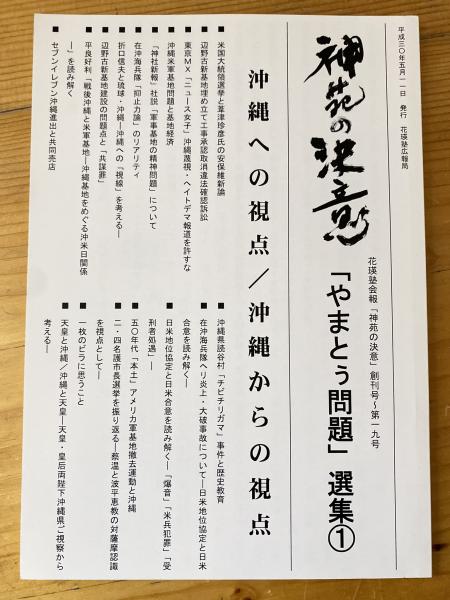 平成三〇年五月一一日　発行　花瑛塾広報局
神苑の決意
花瑛塾会報「神苑の決意」創刊号～第一九号
「やまとぅ問題」選集①
沖縄への視点／沖縄からの視点
■米国大統領選挙と葦津珍彦氏の安保維新論
■辺野古新基地埋め立て工事承認取消違法確認訴訟
■東京MX「ニュース女子」沖縄蔑視・ヘイトデマ報道を許すな
■沖縄米軍基地問題と基地経済
■「神社新報」社説「軍事基地の精神問題」について
■在沖海兵隊「抑止力論」のリアリティ
■折口信夫と琉球・沖縄―沖縄への「視線」を考える―
■辺野古新基地建設の問題点と「共謀罪」
■平良好利「戦後沖縄と米軍基地―沖縄基地をめぐる沖米日関係
―」を読み解く
■セブンイレブン沖縄進出と共同売店
■沖縄県読谷村「チビチリガマ」事件と歴史教育
■在沖海兵隊ヘリ炎上・大破事故について―日米地位協定と日米
合意を読み解く―
■日米地位協定と日米合意を読み解く―「爆音」「米兵犯罪」「受
刑者処遇」―
■五〇年代「本土」アメリカ軍基地撤去運動と沖縄
■二・四名護市長選挙を振り返る―蔡温と波平恵教の対薩摩認識
を視点として―
■一枚のビラに思うこと
■天皇と沖縄／沖縄と天皇―天皇・皇后両陛下沖縄県ご視察から
考える―